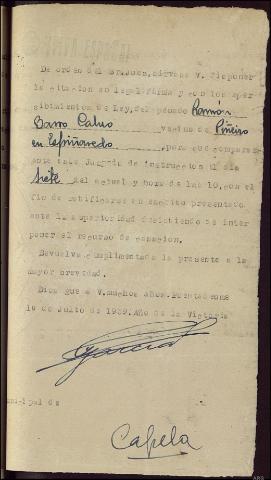 De orden del Sr. Juez, sírvase V. disponer
la citación en legal forma y con los aper
cibimientos de Ley, del penado Ramón
Barro Calvo vecino de Piñeiro
en Espiñaredo para que comparezca
ante este Juzgado de instrucción el día
siete del actual y hora de las 10, con el
fin de ratificarse en escrito presentado
ante la superioridad desistiendo de inter
poner el recurso de casación.
Devuelva cumplimentada la presente a la
mayor brevedad.
Dios gue a V. muchos años. Puentedeume
1º de Julio de 1939. Año de la Victoria
García
nicipal de
Capela